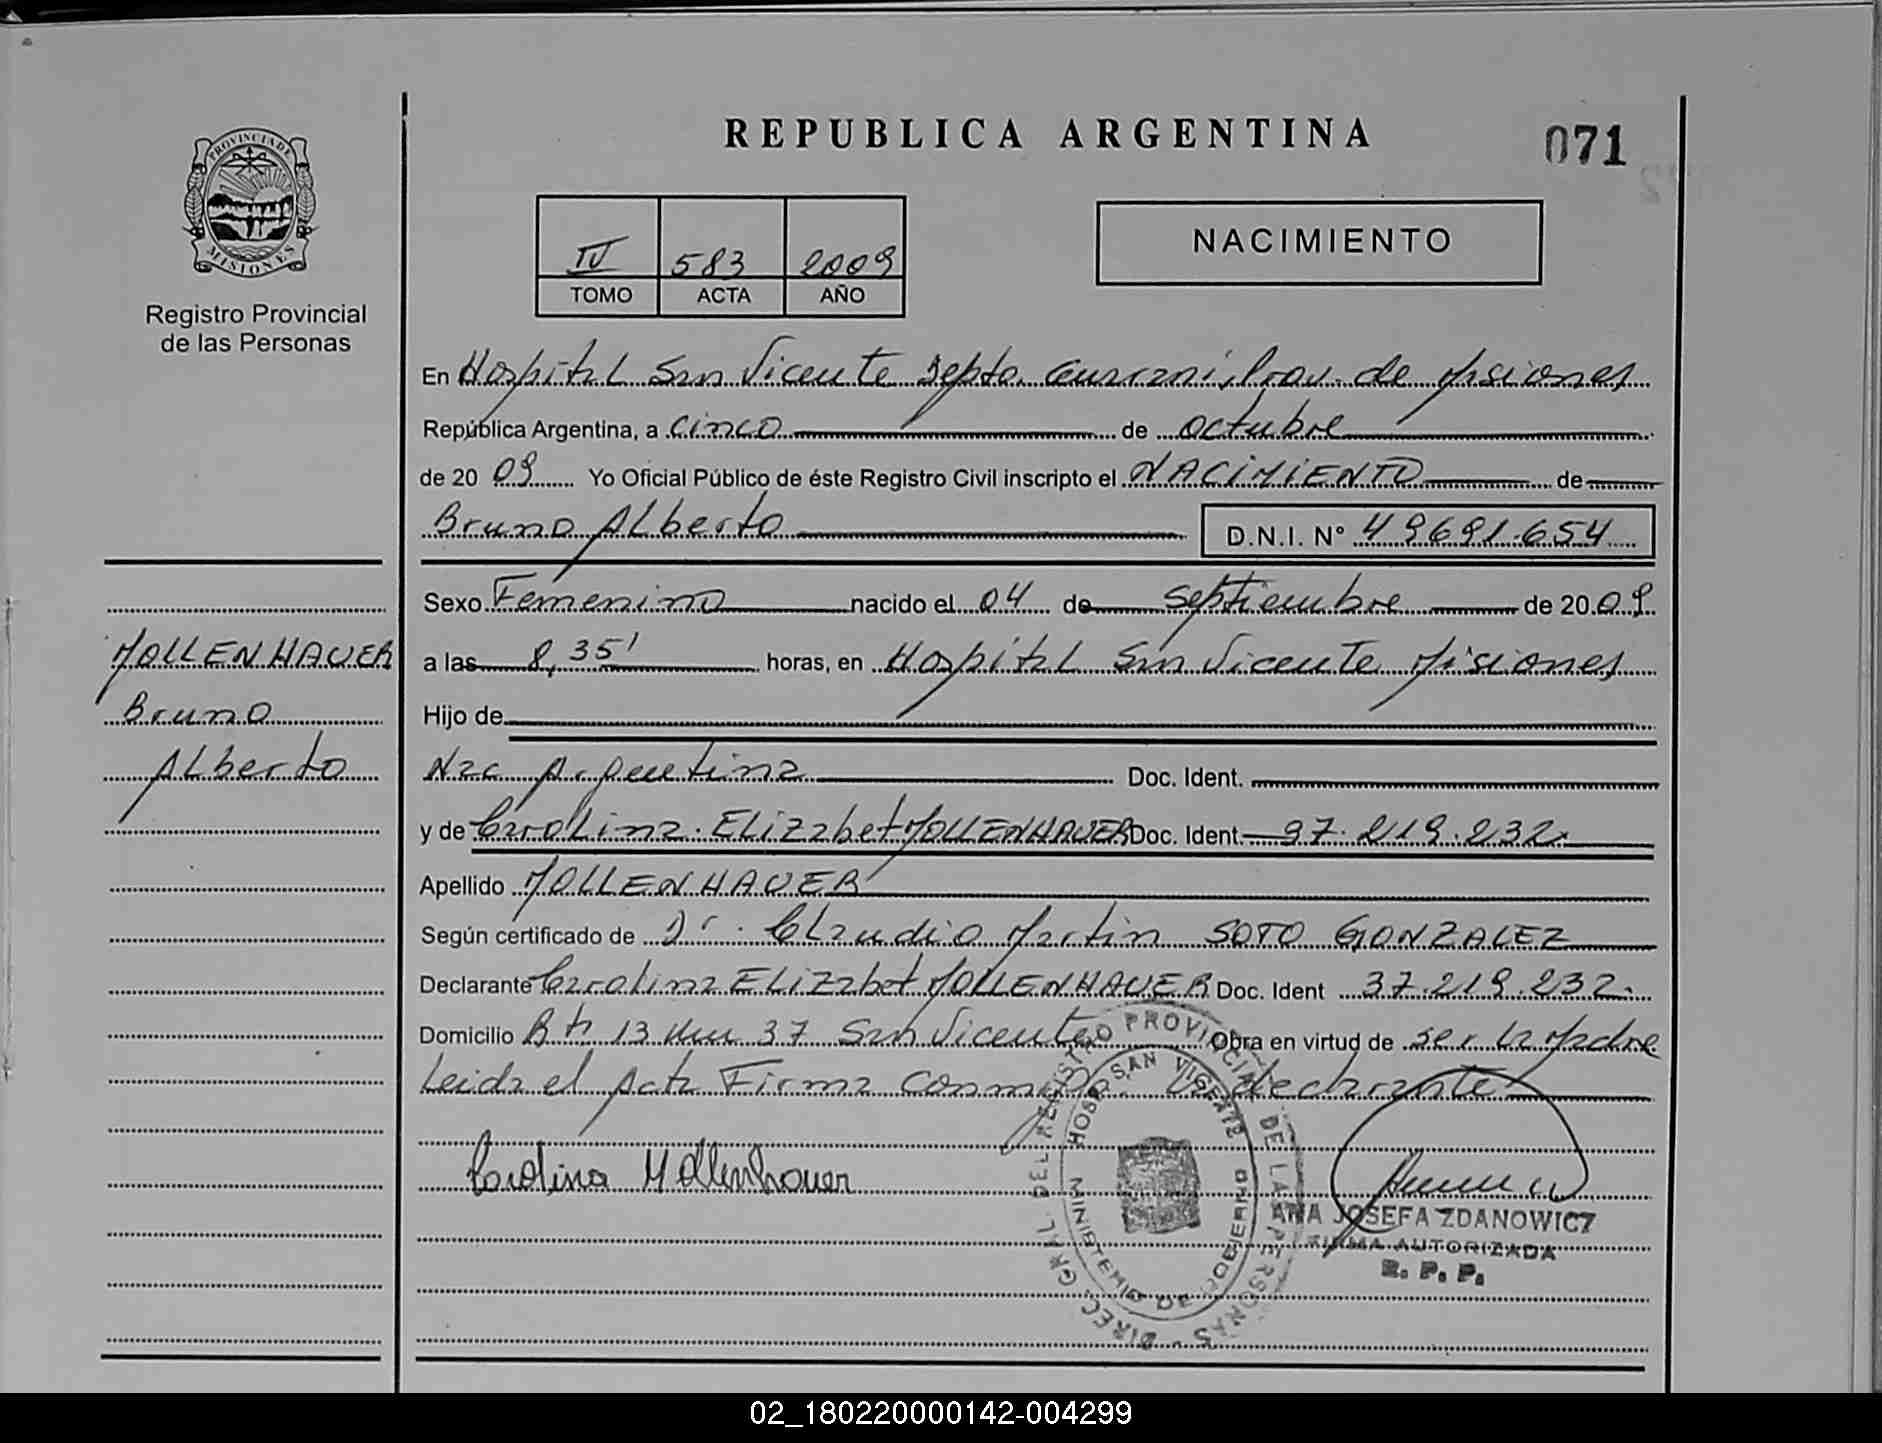 REPUBLICA ARGENTINA
071
PROVINCIA DE
MISIONES
Registro Provincial
de las Personas
IV 583 2009
TOMO ACTA AÑO
NACIMIENTO
En Hospital San Vicente Depto. Guarani, Prov. de Misiones
República Argentina, a cinco de octubre
de 2009 Yo Oficial Público de éste Registro Civil inscripto el NACIMIENTO de
Bruno Alberto D.N.I. N° 49691.654
Sexo Femenino nacido el 04 de Septiembre de 2009
a las 8,35' horas, en Hospital San Vicente Misiones
Hijo de
Nac Argentina Doc. Ident.
y de Carolina Elizabet MOLLENHAUER Doc. Ident. 37.219.232.
Apellido MOLLENHAUER
Según certificado de Dr. Claudio Martin SOTO GONZALEZ
Declarante Carolina Elizabet MOLLENHAUER Doc. Ident 37.219.232.
Domicilio Bº 13 Km 37 San Vicente Obra en virtud de ser la Madre
Leida el Acta Firma conmigo la declarante
MOLLENHAUER
Bruno
Alberto
Carolina Mollenhauer
DIREC. GRAL. DEL REGISTRO PROVINCIAL DE LAS PERSONAS
HOSP. SAN VICENTE
MINISTERIO DE GOBIERNO
ANA JOSEFA ZDANOWICZ
FIRMA AUTORIZADA
R. P. P.
02_180220000142-004299